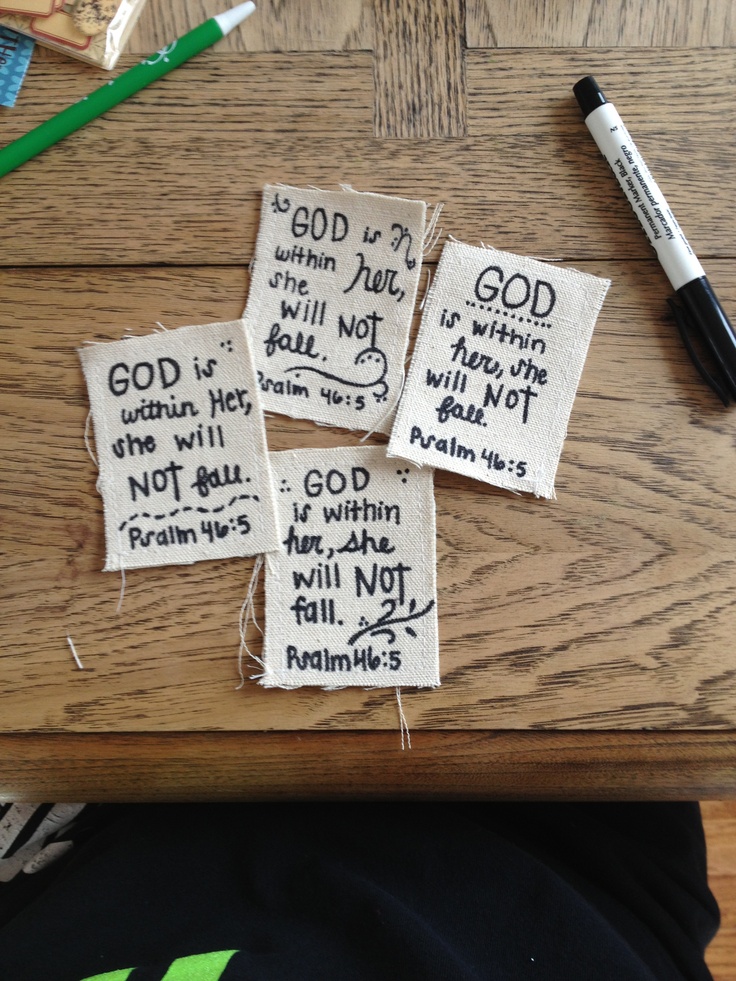 GOD is
within her,
she
will NOT
fall.
Psalm 46:5
GOD
is within
her, she
will NOT
fall.
Psalm 46:5
GOD is
within Her,
she will
NOT fall.
Psalm 46:5
GOD
is within
her, she
will NOT
fall.
Psalm 46:5
Permanent Marker, Black
Marcador permanente, negro